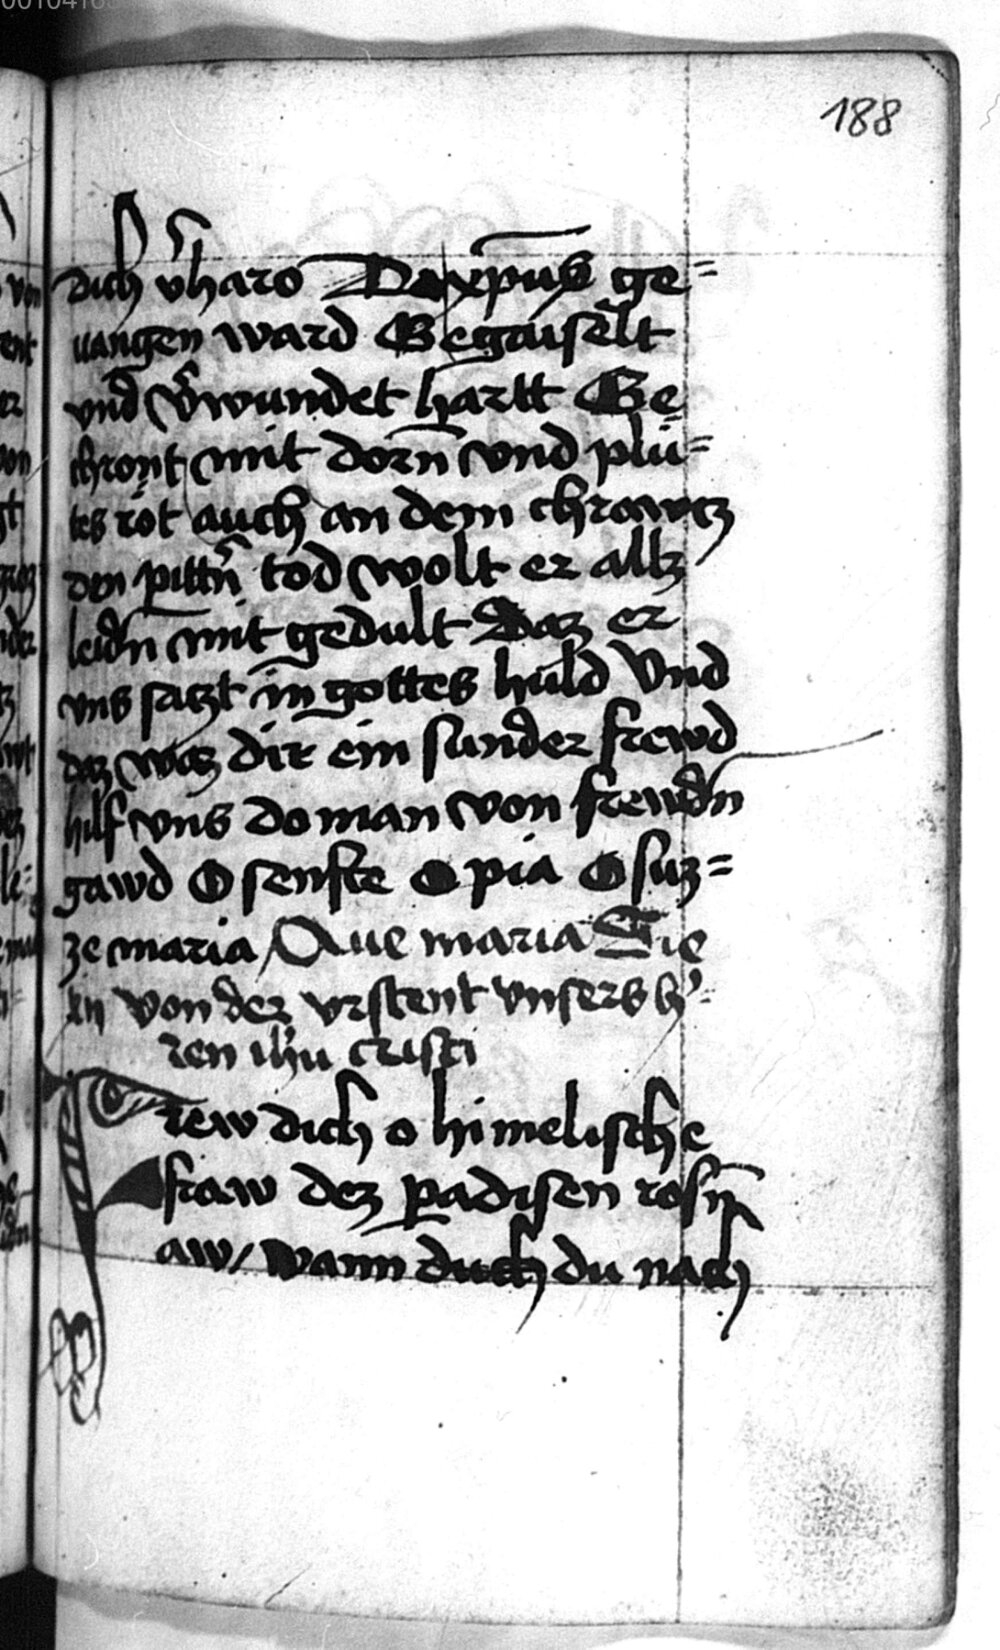 188
dich v̄haro Da xp̄us ge=
uangen ward Gegaiselt
vnd v̄wundet hartt Ge
chront mit dorn̄ vnd plu=
tes röt auch an dem chrawtz
den pittn̄ tod wolt er allz
leidn mit gedult Daz er
vns satzt in gottes huld Vnd
daz waz dir ein sunder frewd
hilf vns do man von frewdn
gawd O senfte O pia O suz=
ze maria Aue maria Die
xij von der vrstent vnsers h̓=
ren ih̄u cristi
rew dich o himelische
fraw dez padisen rosn̄
aw / wann duch du nach